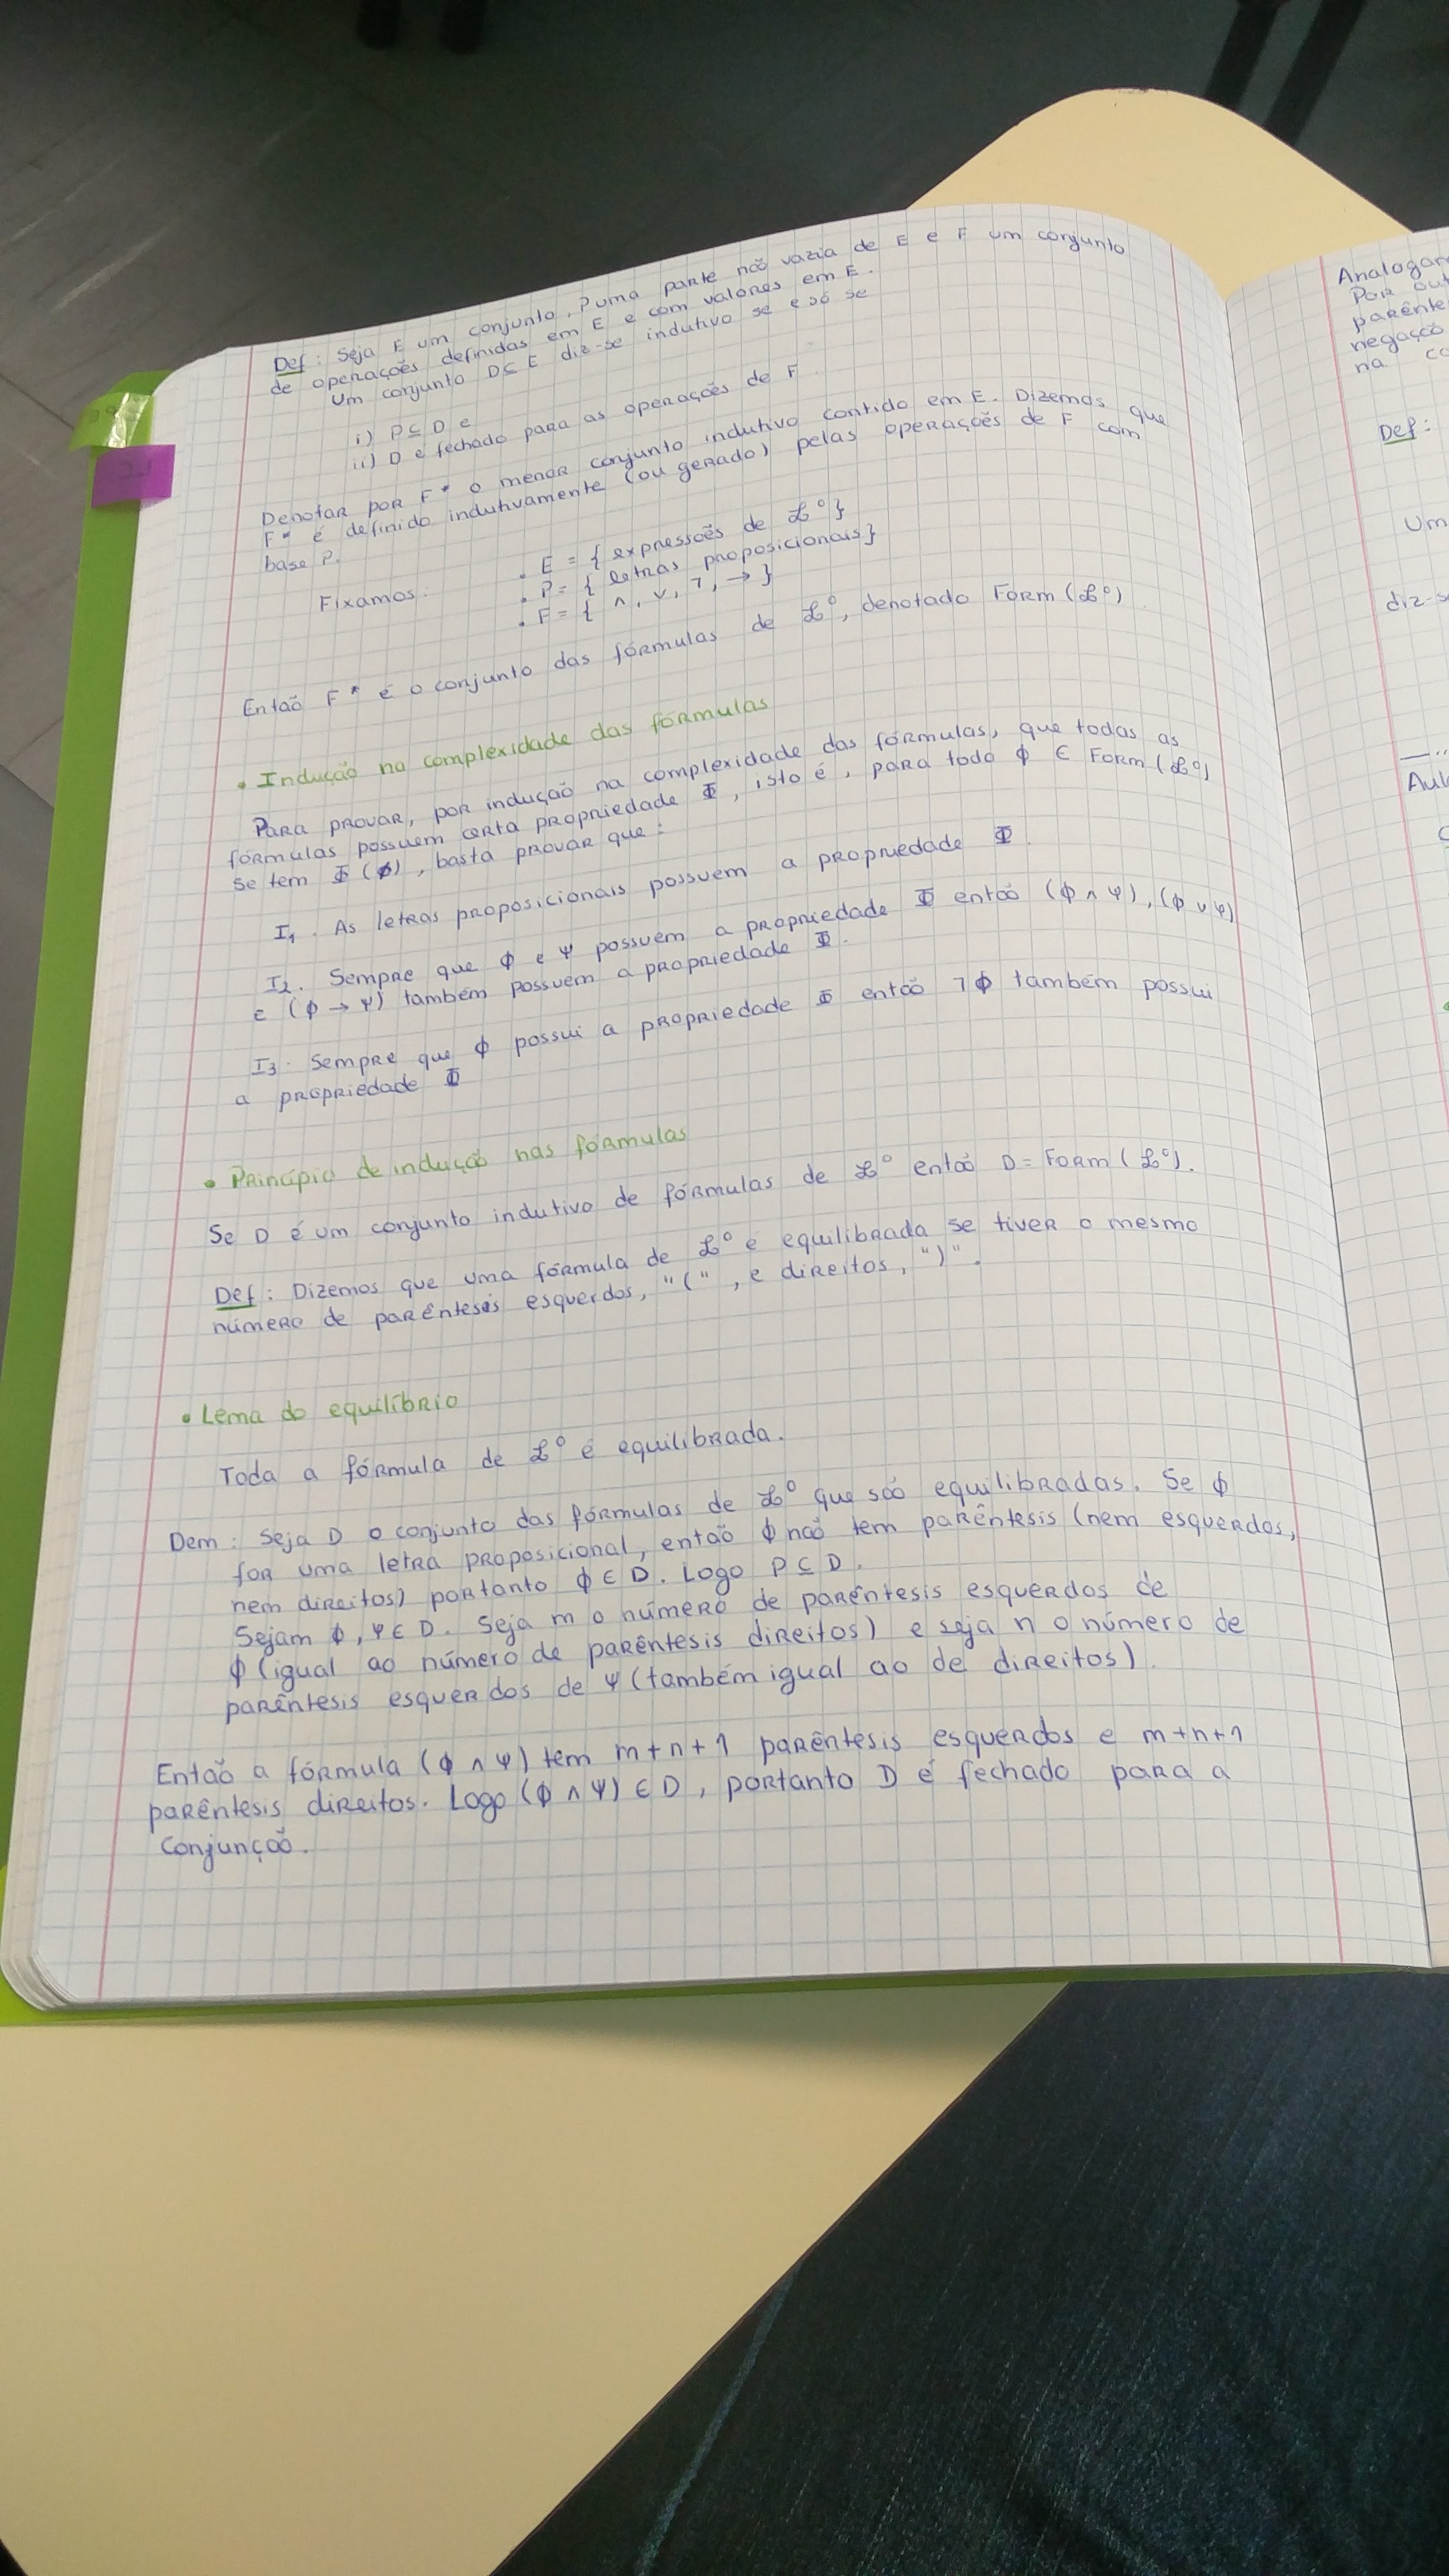 Def: Seja E um conjunto, P uma parte não vazia de E e F um conjunto
de operações definidas em E e com valores em E.
Um conjunto D⊆E diz-se indutivo se e só se
i) P⊆D e
ii) D é fechado para as operações de F.
Denotar por F* o menor conjunto indutivo contido em E. Dizemos que
F* é definido indutivamente (ou gerado) pelas operações de F com
base P.
Fixamos:
. E = { expressões de ℒ⁰}
. P = { letras proposicionais}
. F = { ∧, ∨, ¬, → }
Então F* é o conjunto das fórmulas de ℒ⁰, denotado Form (ℒ⁰)
• Indução na complexidade das fórmulas
Para provar, por indução na complexidade das fórmulas, que todas as
fórmulas possuem certa propriedade Φ, isto é, para todo ϕ ∈ Form (ℒ⁰)
se tem Φ (ϕ), basta provar que:
I1. As letras proposicionais possuem a propriedade Φ.
I2. Sempre que ϕ e ψ possuem a propriedade Φ então (ϕ ∧ ψ), (ϕ ∨ ψ)
e (ϕ → ψ) também possuem a propriedade Φ.
I3. Sempre que ϕ possui a propriedade Φ então ¬ϕ também possui
a propriedade Φ
• Princípio de indução nas fórmulas
Se D é um conjunto indutivo de fórmulas de ℒ⁰ então D = Form (ℒ⁰).
Def: Dizemos que uma fórmula de ℒ⁰ é equilibrada se tiver o mesmo
número de parêntesis esquerdos, "(", e direitos, ")".
• Lema do equilíbrio
Toda a fórmula de ℒ⁰ é equilibrada.
Dem: Seja D o conjunto das fórmulas de ℒ⁰ que são equilibradas. Se ϕ
for uma letra proposicional, então ϕ não tem parêntesis (nem esquerdos,
nem direitos) portanto ϕ ∈ D. Logo P ⊆ D.
Sejam ϕ, ψ ∈ D. Seja m o número de parêntesis esquerdos de
ϕ (igual ao número de parêntesis direitos) e seja n o número de
parêntesis esquerdos de ψ (também igual ao de direitos).
Então a fórmula (ϕ ∧ ψ) tem m+n+1 parêntesis esquerdos e m+n+1
parêntesis direitos. Logo (ϕ ∧ ψ) ∈ D, portanto D é fechado para a
conjunção.
Por
negação
na
Def:
Um